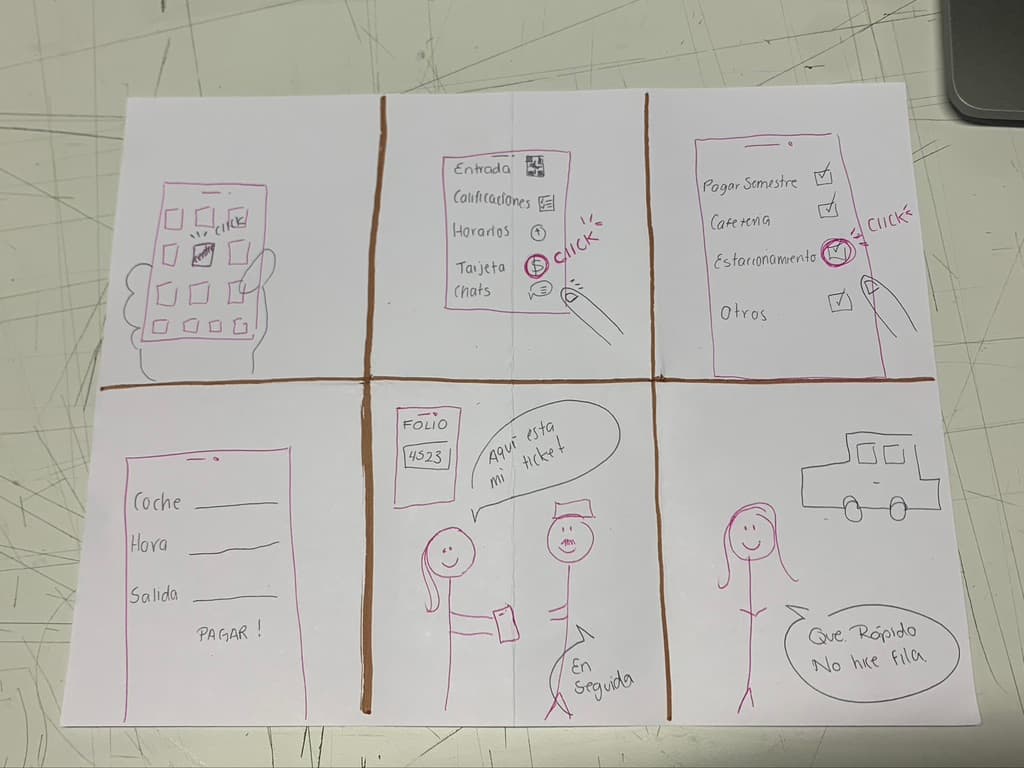 CLICK
Entrada
Calificaciones
Horarios
Tarjeta
$
CLICK
Chats
Pagar Semestre
Cafeteria
Estacionamiento
CLICK
Otros
Coche
Hora
Salida
PAGAR !
FOLIO
4523
Aquí esta
mi ticket
En
Seguida
Que Rápido
No hice fila